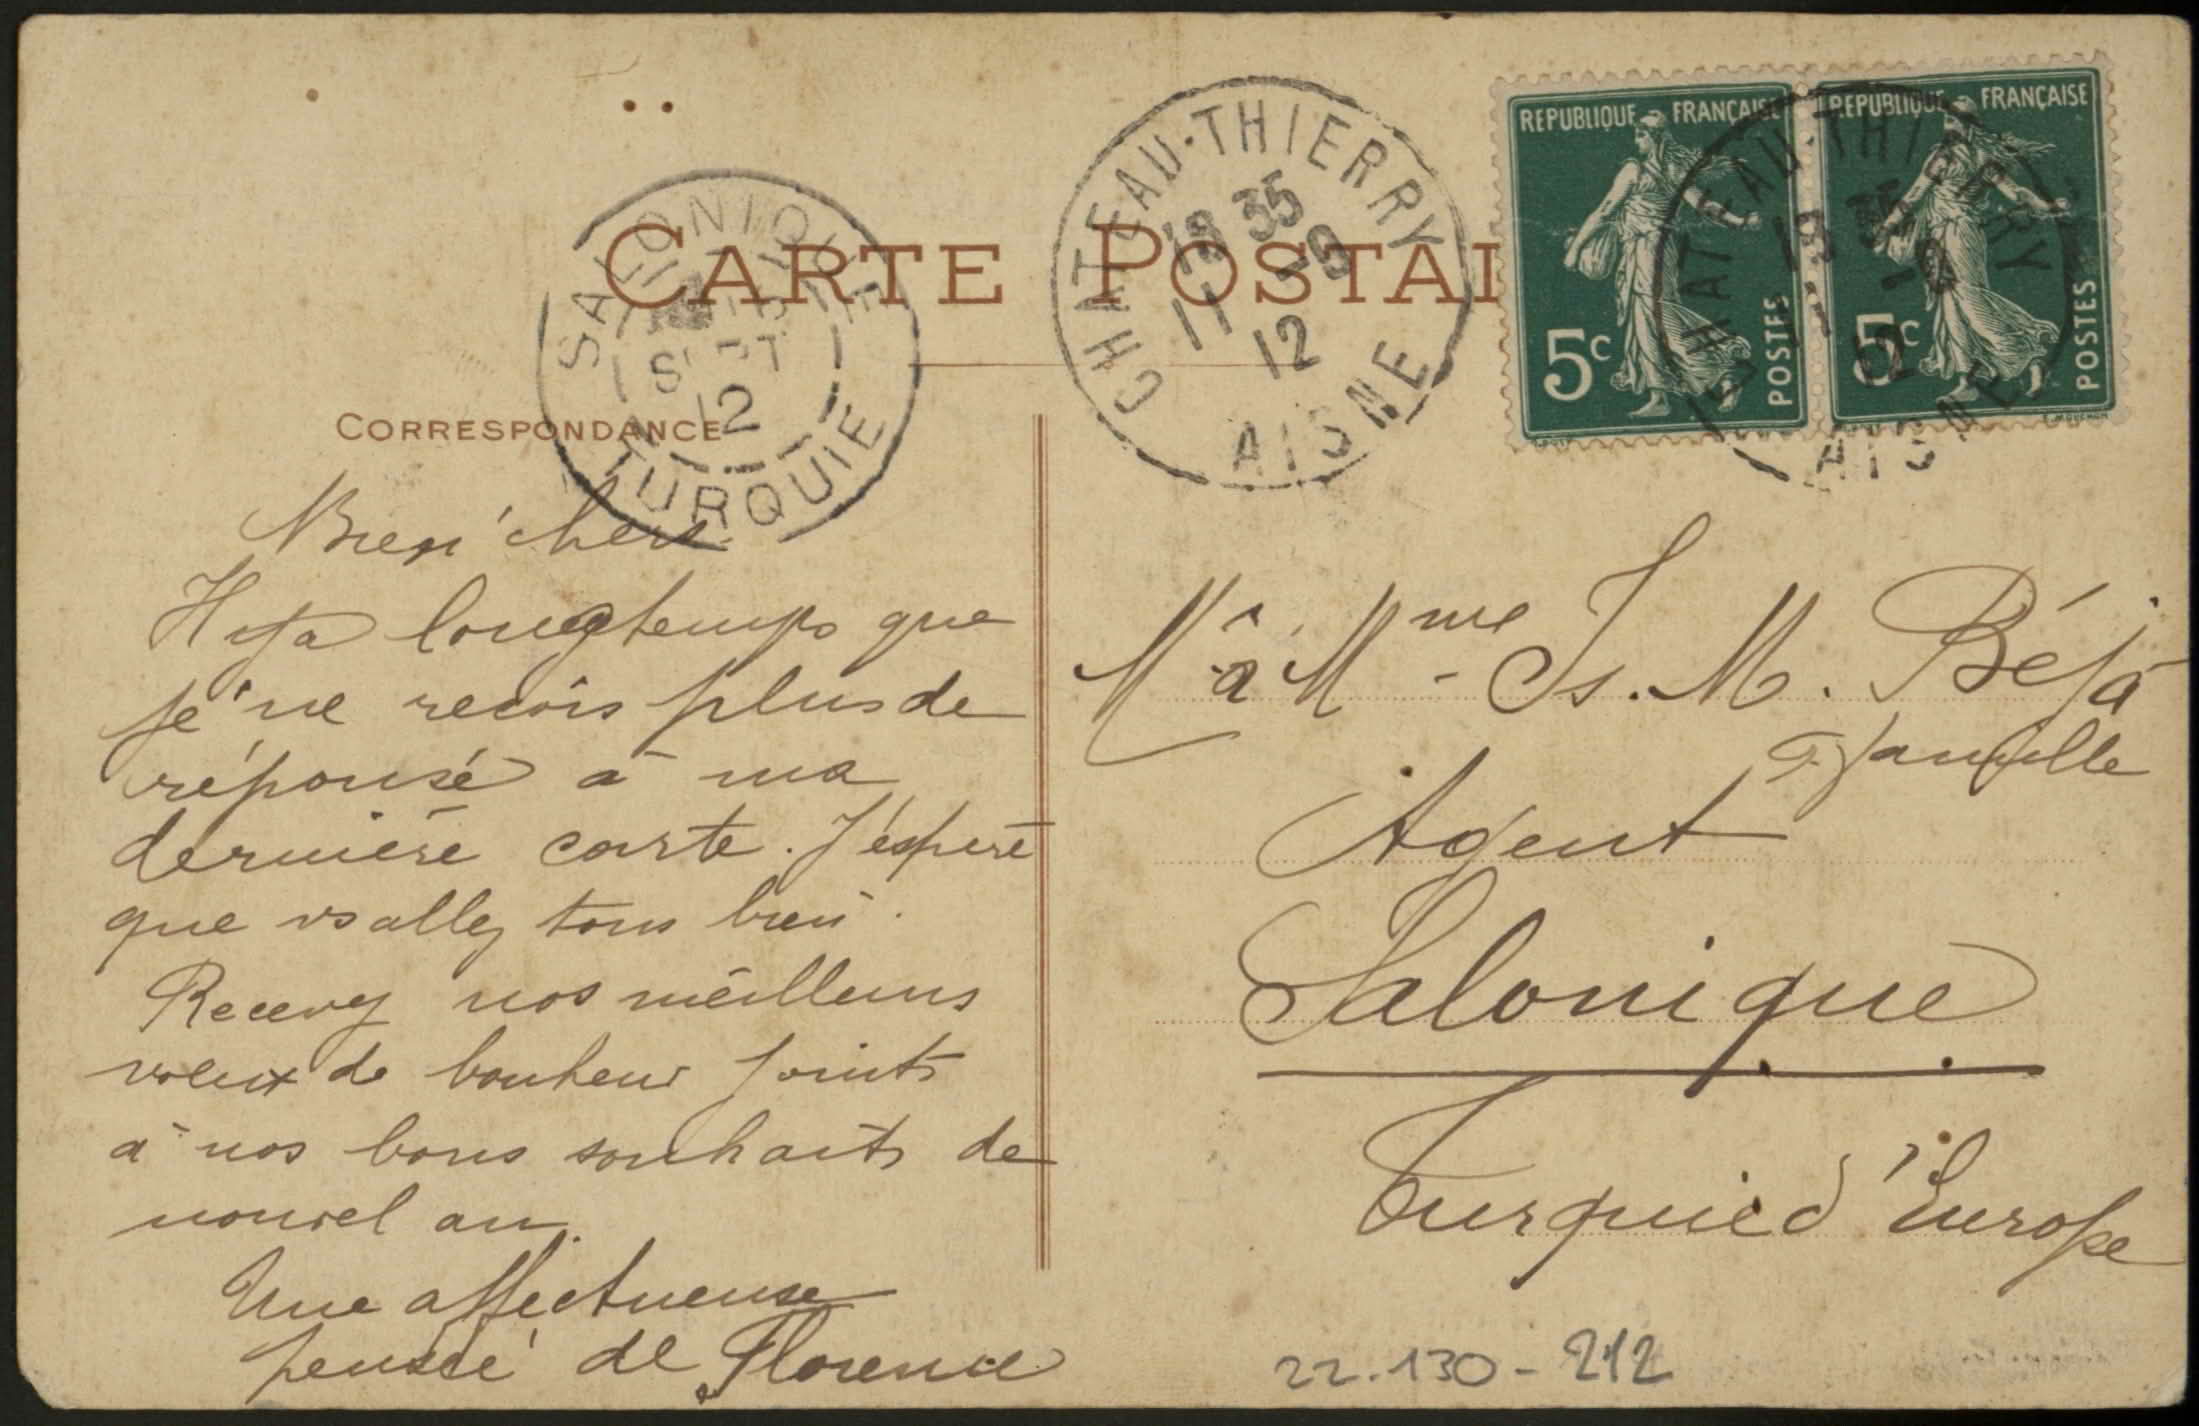 CARTE POSTAL
CORRESPONDANCE
SALONIQUE
SEPT
12
TURQUIE
CHATEAU-THIERRY
19 35
11 -9
12
AISNE
REPUBLIQUE FRANÇAISE
5c
POSTES
REPUBLIQUE FRANÇAISE
5c
POSTES
E. MOUCHON
CHATEAU-THIERRY
19 35
11 -9
12
AISNE
Bien chers
Il y a longtemps que
je ne reçois plus de
réponse à ma
dernière carte. J'espère
que vs allez tous bien.
Recevez nos meilleurs
voeux de bonheur joints
à nos bons souhaits de
nouvel an.
Une affectueuse
pensée de Florence
Mr & Mme Is. M. Béja
& famille
Agent
Salonique
Turquie d'Europe
22.130-212